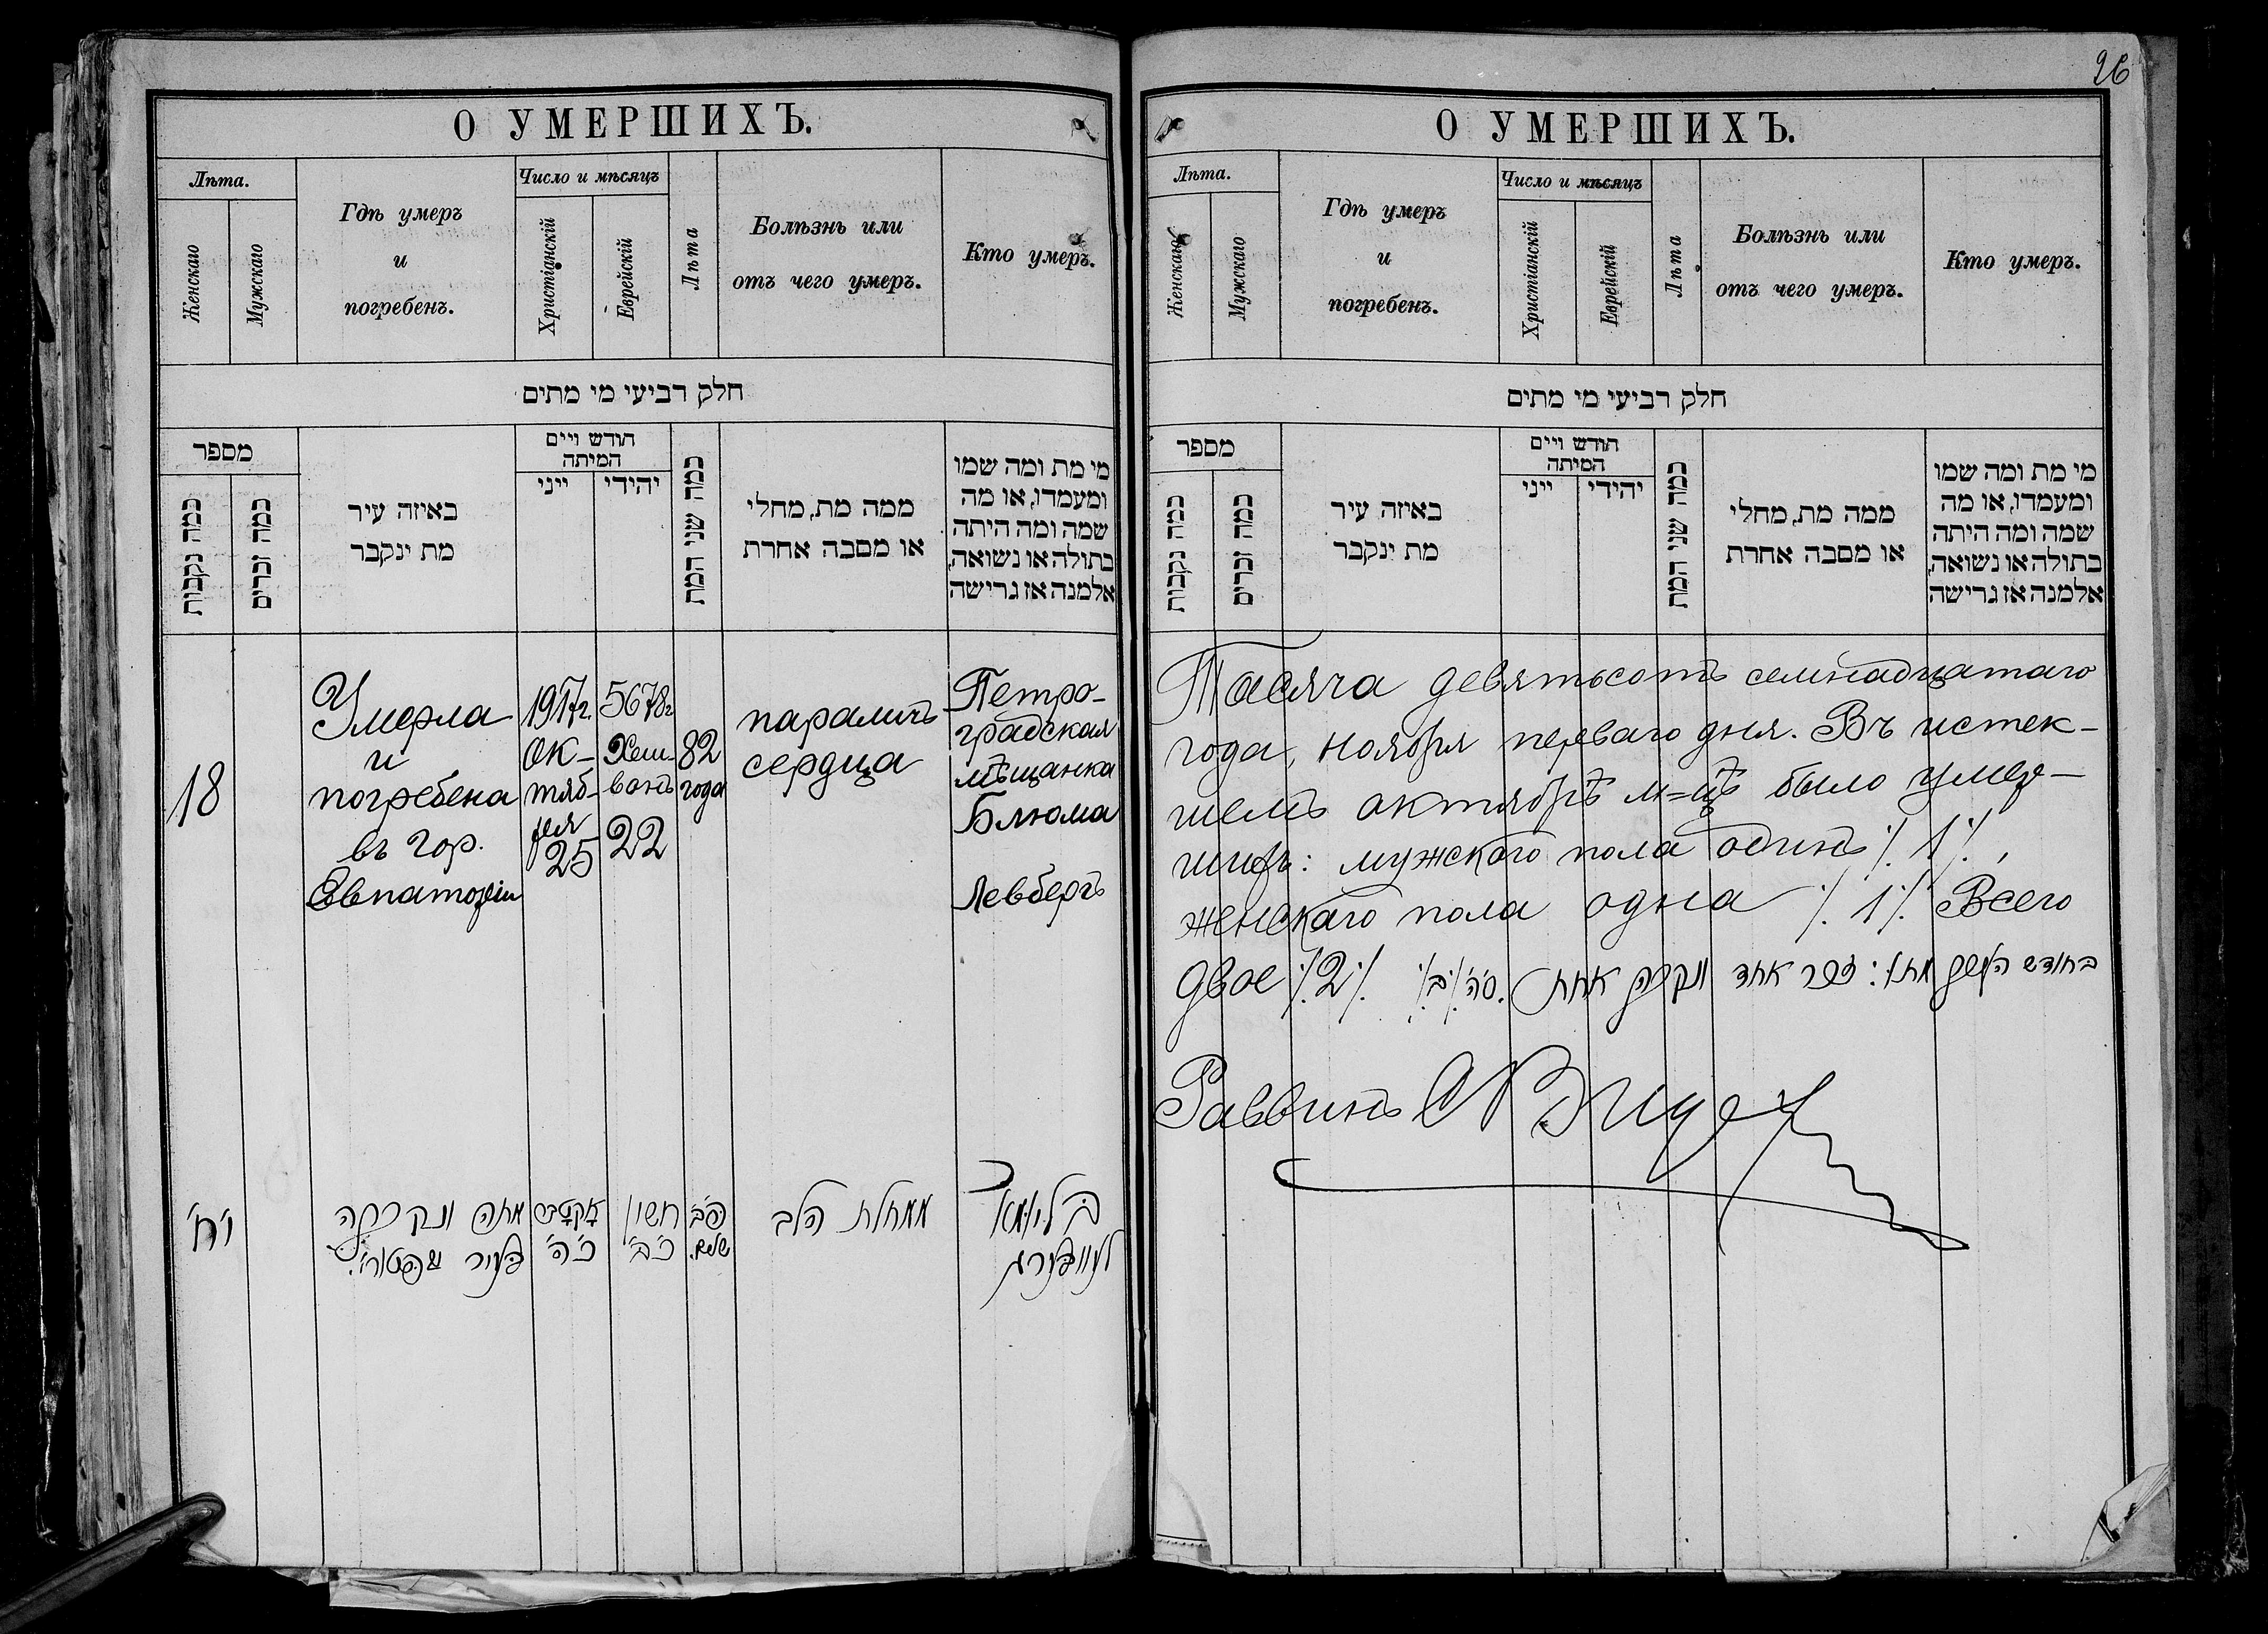 О УМЕРШИХЪ.
Лѣта.
Женскаго
Мужскаго
Гдѣ умеръ
и
погребенъ.
Число и мѣсяцъ
Христіанскій
Еврейскій
Лѣта
Болѣзнь или
отъ чего умеръ.
Кто умеръ.
חלק רביעי מי מתים
מספר
כמה נקבות
כמה זכרים
באיזה עיר
מת ינקבר
חודש ויים
המיתה
ייני
יהידי
כמה שני המת
ממה מת, מחלי
או מסבה אחרת
מי מת ומה שמו
ומעמדו, או מה
שמה ומה היתה
בתולה או נשואה,
אלמנה אז גרישה
18
Умерла
и
погребена
въ гор.
Евпаторіи
1917г.
ок-
тяб-
ря
25
5678г
Хеш-
ванъ
22
82
года
параличъ
сердца
Петро-
градская
мѣщанка
Блюма
Левбергъ
י'ח'
מתה ונקברה
בעיר
אקטבר
כ'ה'
חשון
כ'ב'
פ'ב
ממחלת הלב
בליומא
לעוובערג
26
О УМЕРШИХЪ.
Лѣта.
Женскаго
Мужскаго
Гдѣ умеръ
и
погребенъ.
Число и мѣсяцъ
Христіанскій
Еврейскій
Лѣта
Болѣзнь или
отъ чего умеръ.
Кто умеръ.
חלק רביעי מי מתים
מספר
כמה נקבות
כמה זכרים
באיזה עיר
מת ינקבר
חודש ויים
המיתה
ייני
יהידי
כמה שני המת
ממה מת, מחלי
או מסבה אחרת
מי מת ומה שמו
ומעמדו, או מה
שמה ומה היתה
בתולה או נשואה,
אלמנה אז גרישה
Тысяча девятьсотъ семнадцатаго
года, ноября перваго дня. Въ истек-
шемъ октябрѣ м=цѣ было умер-
шихъ: мужскаго пола одинъ ·/. 1 ·/.,
женскаго пола одна ·/. 1 ·/. Всего
двое ·/. 2 ·/.
בחודש מתו: זכר אחד ונקבה אחת. ס'ה' ·/. ב' ·/.
Раввинъ